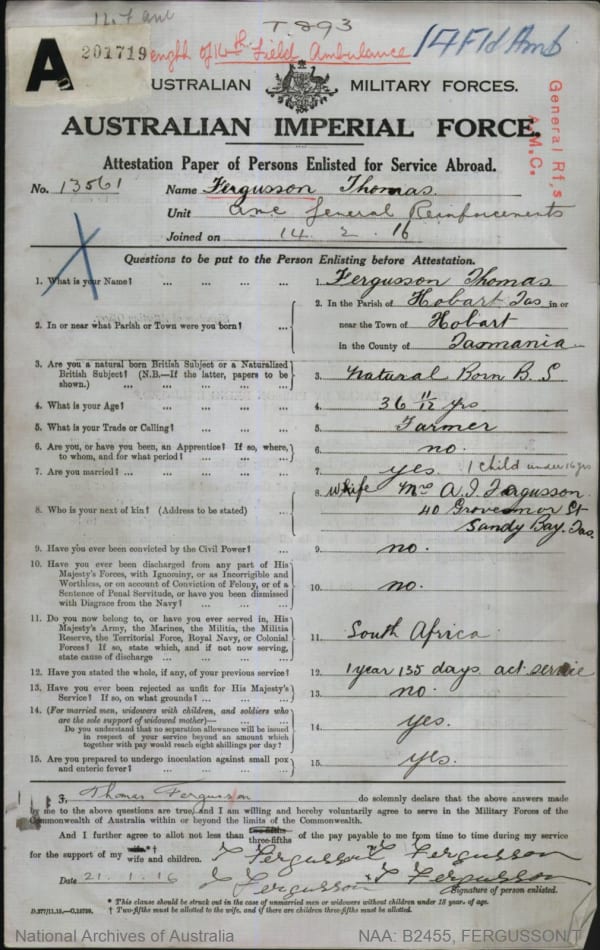 T.893
201719
A
length of 16th Field Ambulance
14 Fld Amb
AUSTRALIAN MILITARY FORCES.
AUSTRALIAN IMPERIAL FORCE.
General Rf,s
A.M.C.
Attestation Paper of Persons Enlisted for Service Abroad.
No. 13561 Name Fergusson Thomas.
Unit amc General Reinforcements
Joined on 14. 2. 16
Questions to be put to the Person Enlisting before Attestation.
1. What is your Name? ... ... ... 1. Fergusson Thomas
2. In or near what Parish or Town were you born? ... 2. In the Parish of Hobart Tas in or
near the Town of Hobart
in the County of Tasmania
3. Are you a natural born British Subject or a Naturalized
British Subject? (N.B.—If the latter, papers to be
shown.) ... ... ... ... 3. Natural Born B. S
4. What is your Age? ... ... ... 4. 36 11/12 yrs
5. What is your Trade or Calling? ... ... 5. Farmer
6. Are you, or have you been, an Apprentice? If so, where,
to whom, and for what period? ... ... 6. no.
7. Are you married? ... ... ... ... 7. yes. 1 child under 16 yrs
8. Who is your next of kin? (Address to be stated) ... 8. wife Mrs A. J. Fergusson
40 Grovernor St
Sandy Bay. Tas.
9. Have you ever been convicted by the Civil Power? ... 9. no.
10. Have you ever been discharged from any part of His
Majesty's Forces, with Ignominy, or as Incorrigible and
Worthless, or on account of Conviction of Felony, or of a
Sentence of Penal Servitude, or have you been dismissed
with Disgrace from the Navy? ... ... ... 10. no.
11. Do you now belong to, or have you ever served in, His
Majesty's Army, the Marines, the Militia, the Militia
Reserve, the Territorial Force, Royal Navy, or Colonial
Forces? If so, state which, and if not now serving,
state cause of discharge ... ... ... 11. South Africa
12. Have you stated the whole, if any, of your previous service? 12. 1 year 135 days act. service
13. Have you ever been rejected as unfit for His Majesty's
Service? If so, on what grounds? ... ... 13. no.
14. (For married men, widowers with children, and soldiers who
are the sole support of widowed mother)—
Do you understand that no separation allowance will be issued
in respect of your service beyond an amount which
together with pay would reach eight shillings per day? 14. yes.
15. Are you prepared to undergo inoculation against small pox
and enteric fever? ... ... ... 15. yes.
I, Thomas Fergusson do solemnly declare that the above answers made
by me to the above questions are true, and I am willing and hereby voluntarily agree to serve in the Military Forces of the
Commonwealth of Australia within or beyond the limits of the Commonwealth.
And I further agree to allot not less than two-fifths three-fifths of the pay payable to me from time to time during my service
for the support of my wife*† wife and children. T Fergusson T Fergusson
Date 21.1.16 T Fergusson T Fergusson
Signature of person enlisted.
* This clause should be struck out in the case of unmarried men or widowers without children under 18 years of age.
D.377/11.15.—C.15709. † Two-fifths must be allotted to the wife, and if there are children three-fifths must be allotted.
National Archives of Australia NAA: B2455, FERGUSSON T